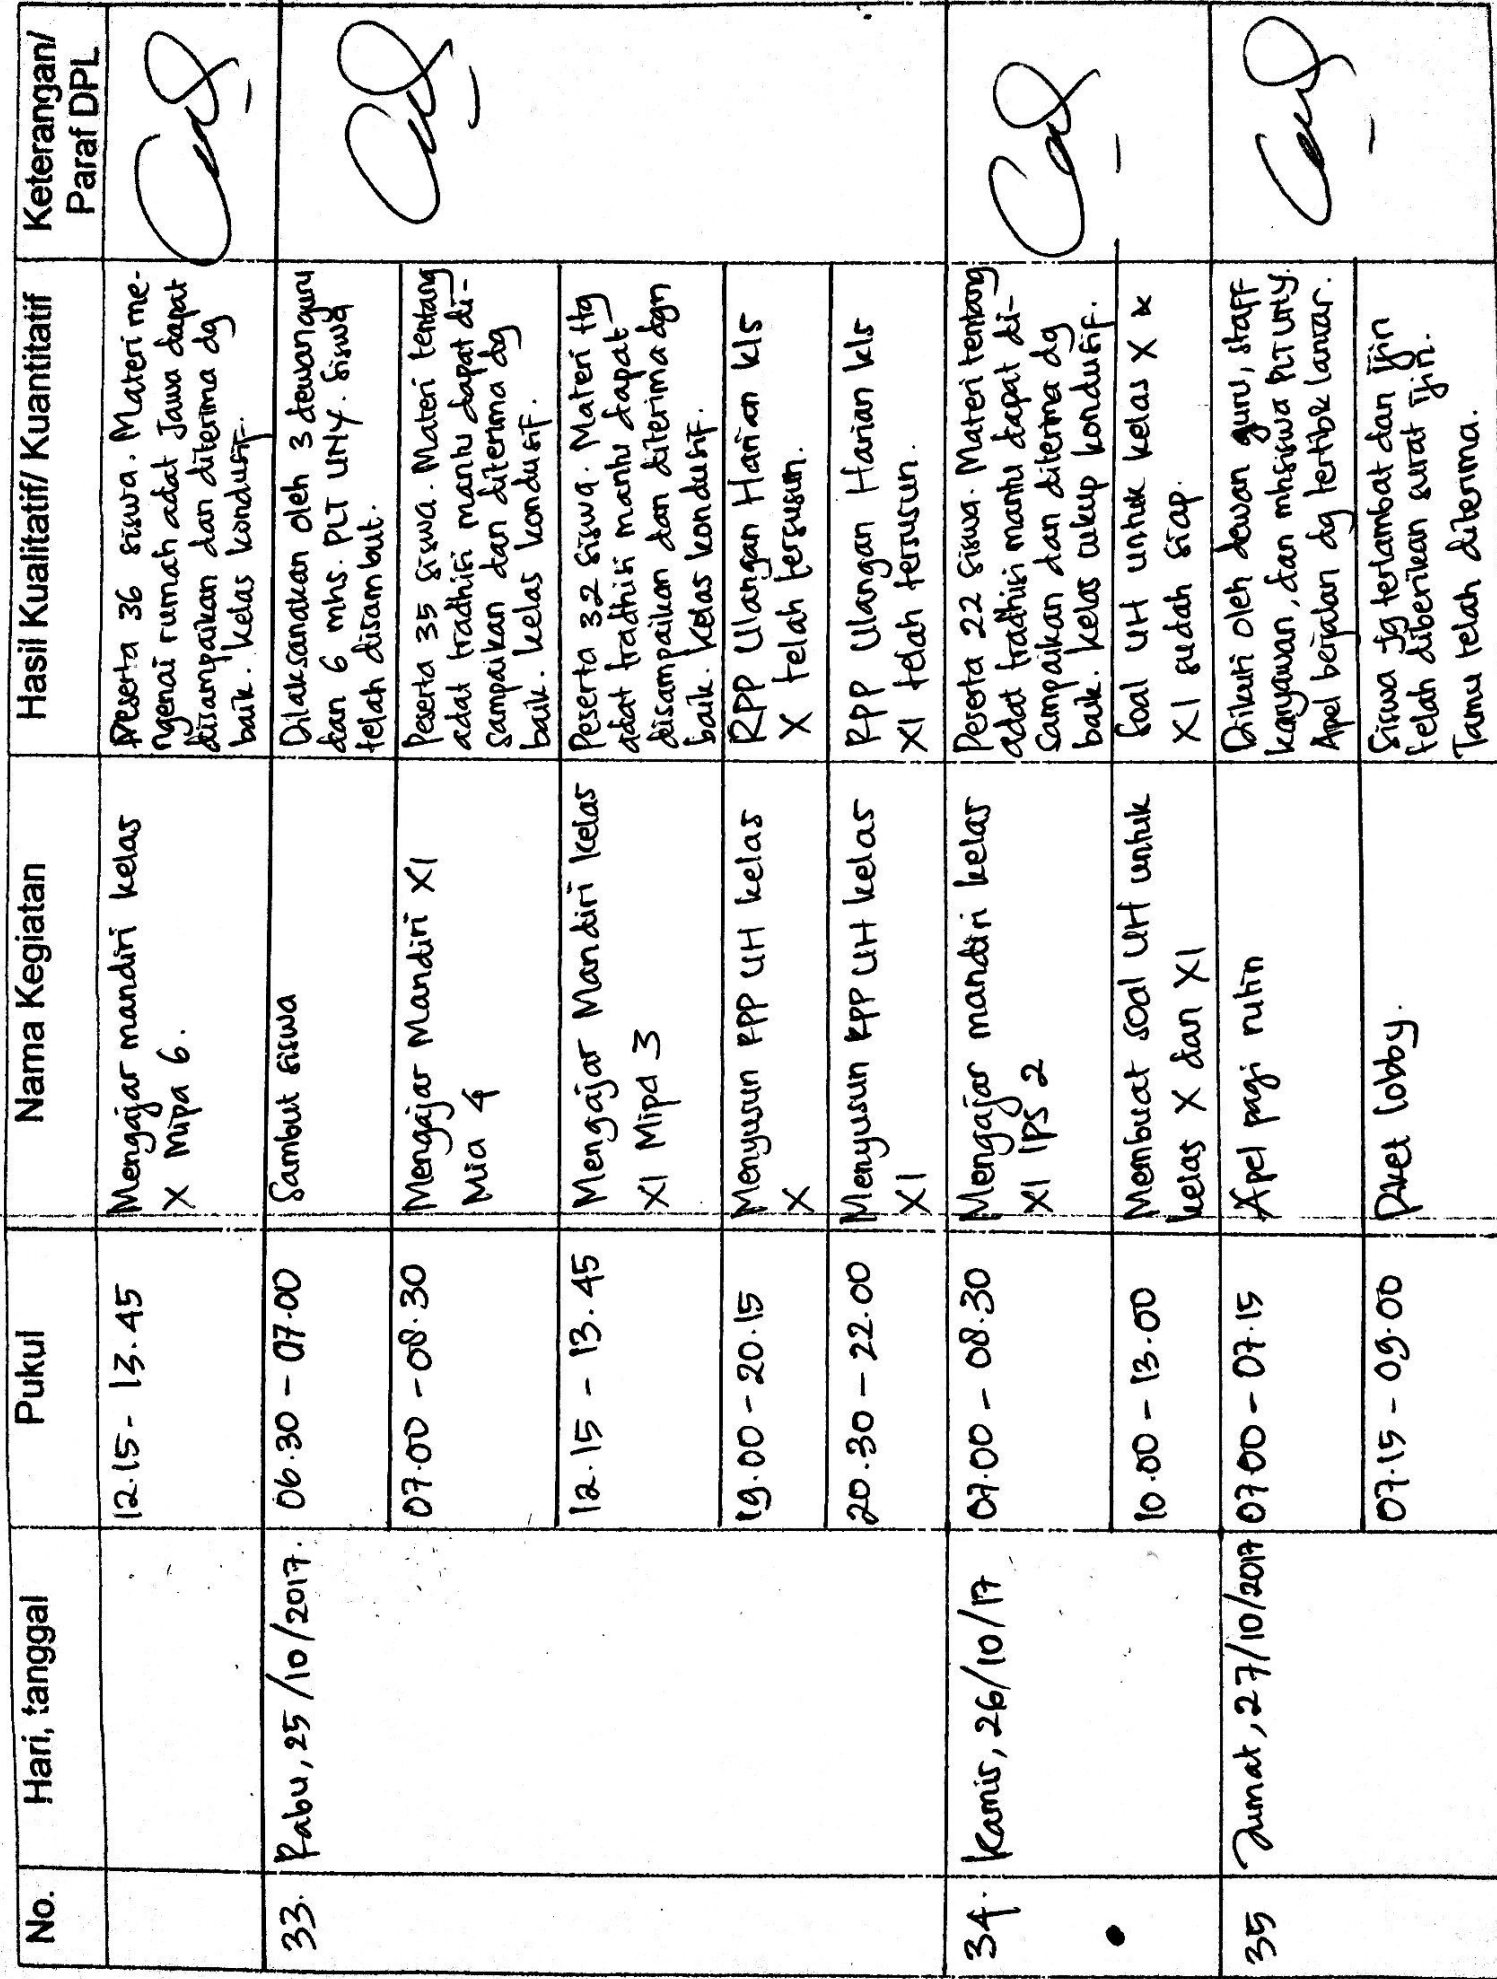 No.
Hari, tanggal
Pukul
Nama Kegiatan
Hasil Kualitatif/ Kuantitatif
Keterangan/
Paraf DPL
12.15 - 13.45
Mengajar mandiri kelas
X Mipa 6.
Peserta 36 siswa. Materi me-
ngenai rumah adat Jawa dapat
disampaikan dan diterima dg
baik. Kelas kondusif.
33.
Rabu, 25/10/2017.
06.30 - 07.00
Sambut siswa
Dilaksanakan oleh 3 dewan guru
dan 6 mhs. PLT UNY. Siswa
telah disambut.
07.00 - 08.30
Mengajar Mandiri XI
Mia 4
Peserta 35 siswa. Materi tentang
adat tradhisi mantu dapat di-
sampaikan dan diterima dg
baik. Kelas kondusif.
12.15 - 13.45
Mengajar Mandiri kelas
XI Mipa 3
Peserta 32 siswa. Materi ttg
adat tradhisi mantu dapat
disampaikan dan diterima dgn
baik. Kelas kondusif.
19.00 - 20.15
Menyusun RPP UH kelas
X
RPP Ulangan Harian kls
X telah tersusun.
20.30 - 22.00
Menyusun RPP UH kelas
XI
RPP Ulangan Harian kls
XI telah tersusun.
34.
Kamis, 26/10/17
07.00 - 08.30
Mengajar mandiri kelas
XI IPS 2
Peserta 22 siswa. Materi tentang
adat tradhisi mantu dapat di-
sampaikan dan diterima dg
baik. Kelas cukup kondusif.
10.00 - 13.00
Membuat soal UH untuk
kelas X dan XI
Soal UH untuk kelas X &
XI sudah siap.
35
Jumat, 27/10/2017
07.00 - 07.15
Apel pagi rutin
Diikuti oleh dewan guru, staff
karyawan, dan mhsiswa PLT UNY.
Apel berjalan dg tertib & lancar.
07.15 - 09.00
Piket lobby.
Siswa yg terlambat dan ijin
telah diberikan surat ijin.
Tamu telah diterima.